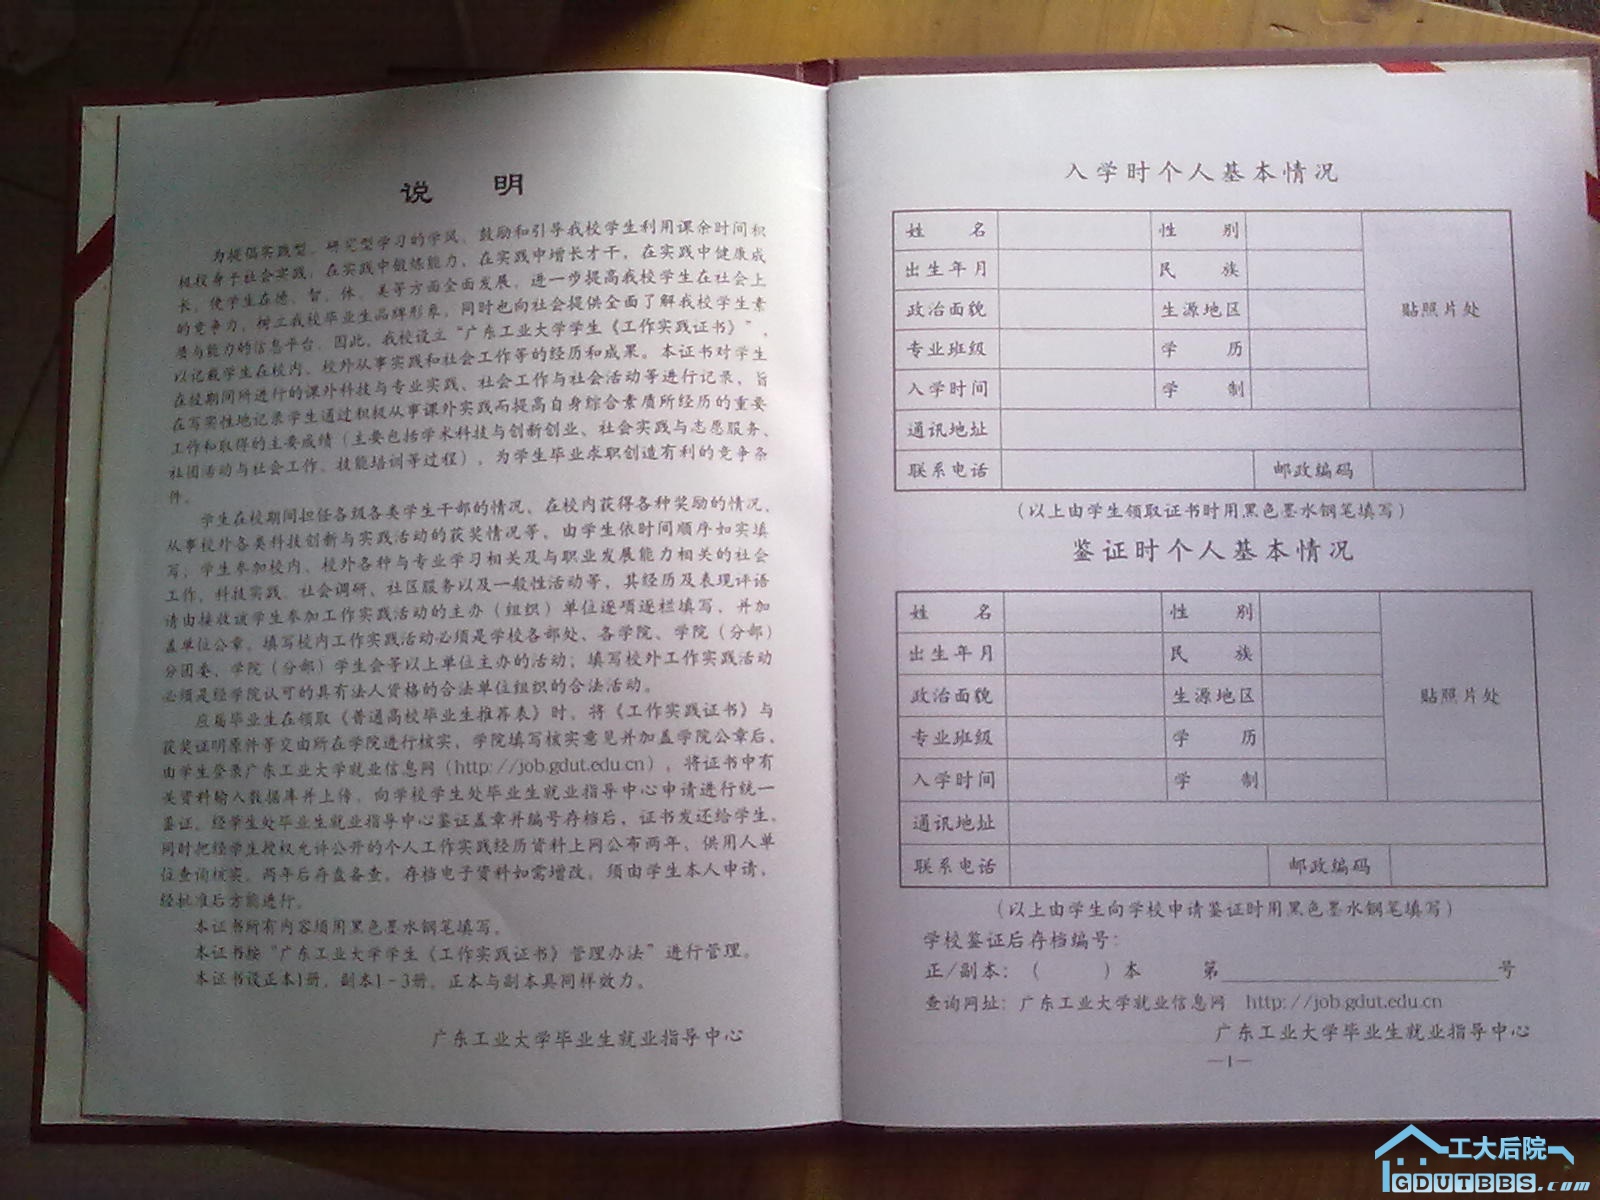 说 明
为提倡实践型、研究型学习的学风，鼓励和引导我校学生利用课余时间积
极投身于社会实践，在实践中锻炼能力，在实践中增长才干，在实践中健康成
长，使学生在德、智、体、美等方面全面发展，进一步提高我校学生在社会上
的竞争力，树立我校毕业生品牌形象，同时也向社会提供全面了解我校学生素
质与能力的信息平台。因此，我校设立“广东工业大学学生《工作实践证书》”，
以记载学生在校内、校外从事实践和社会工作等的经历和成果。本证书对学生
在校期间所进行的课外科技与专业实践、社会工作与社会活动等进行记录，旨
在写实性地记录学生通过积极从事课外实践而提高自身综合素质所经历的重要
工作和取得的主要成绩（主要包括学术科技与创新创业、社会实践与志愿服务、
社团活动与社会工作、技能培训等过程），为学生毕业求职创造有利的竞争条
件。
学生在校期间担任各级各类学生干部的情况、在校内获得各种奖励的情况、
从事校外各类科技创新与实践活动的获奖情况等，由学生依时间顺序如实填
写；学生参加校内、校外各种与专业学习相关及与职业发展能力相关的社会
工作、科技实践、社会调研、社区服务以及一般性活动等，其经历及表现评语
请由接收该学生参加工作实践活动的主办（组织）单位逐项逐栏填写，并加
盖单位公章。填写校内工作实践活动必须是学校各部处、各学院、学院（分部）
分团委、学院（分部）学生会等以上单位主办的活动；填写校外工作实践活动
必须是经学院认可的具有法人资格的合法单位组织的合法活动。
应届毕业生在领取《普通高校毕业生推荐表》时，将《工作实践证书》与
获奖证明原件等交由所在学院进行核实，学院填写核实意见并加盖学院公章后，
由学生登录广东工业大学就业信息网（http://job.gdut.edu.cn），将证书中有
关资料输入数据库并上传，向学校学生处毕业生就业指导中心申请进行统一
鉴证。经学生处毕业生就业指导中心鉴证盖章并编号存档后，证书发还给学生。
同时把经学生授权允许公开的个人工作实践经历资料上网公布两年，供用人单
位查询核实。两年后存盘备查。存档电子资料如需增改，须由学生本人申请，
经批准后方能进行。
本证书所有内容须用黑色墨水钢笔填写。
本证书按“广东工业大学学生《工作实践证书》管理办法”进行管理。
本证书设正本1册，副本1－3册。正本与副本具同样效力。
广东工业大学毕业生就业指导中心
入学时个人基本情况
姓 名 性 别
出生年月 民 族
政治面貌 生源地区 贴照片处
专业班级 学 历
入学时间 学 制
通讯地址
联系电话 邮政编码
（以上由学生领取证书时用黑色墨水钢笔填写）
鉴证时个人基本情况
姓 名 性 别
出生年月 民 族
政治面貌 生源地区 贴照片处
专业班级 学 历
入学时间 学 制
通讯地址
联系电话 邮政编码
（以上由学生向学校申请鉴证时用黑色墨水钢笔填写）
学校鉴证后存档编号：
正/副本：（ ）本 第 号
查询网址：广东工业大学就业信息网 http://job.gdut.edu.cn
广东工业大学毕业生就业指导中心
—1—
工大后院
GDUTBBS.com